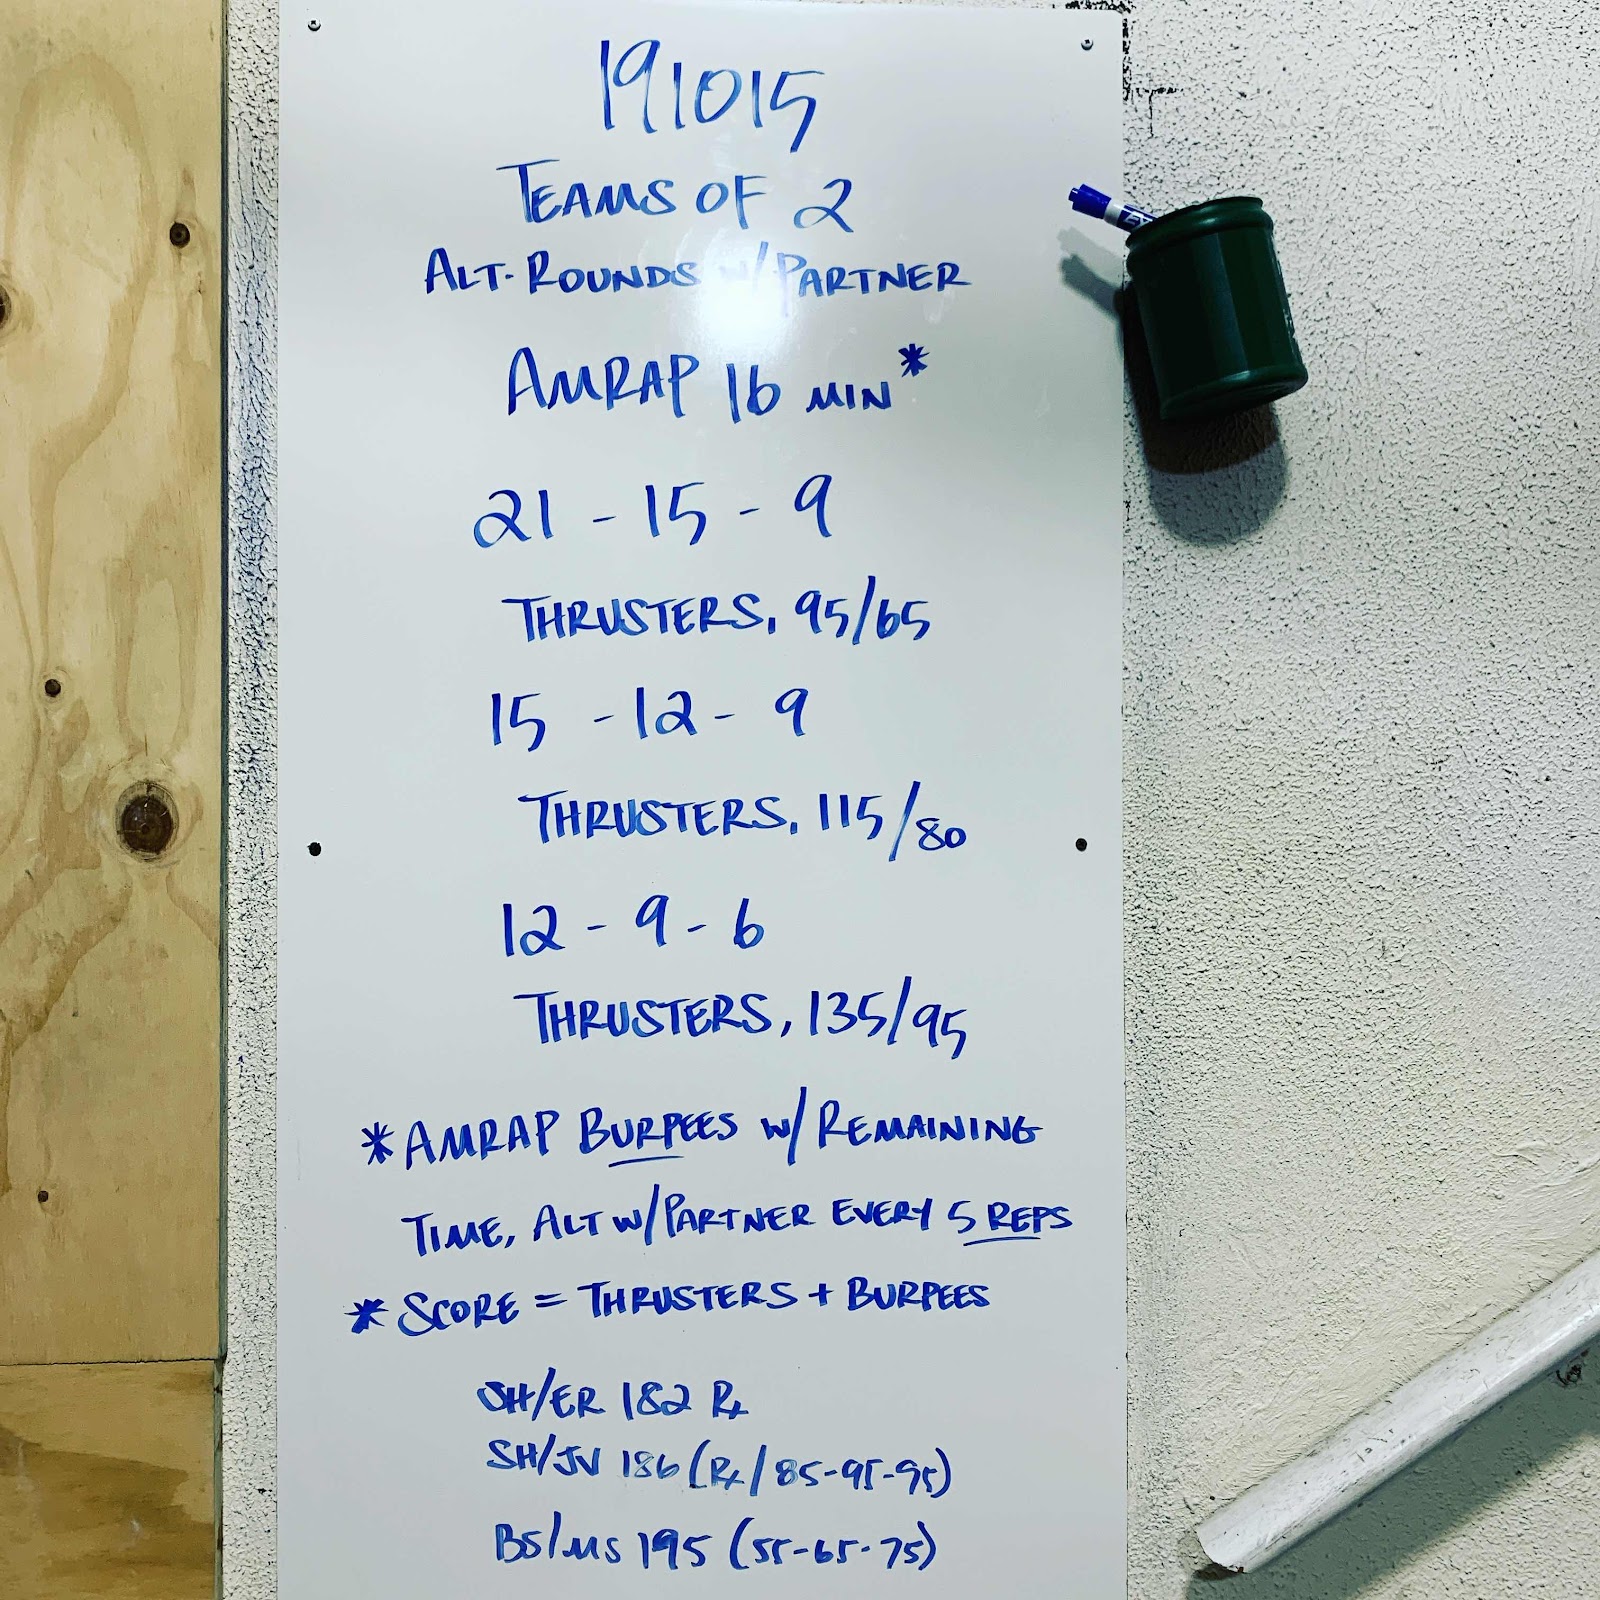 191015
TEAMS OF 2
ALT. ROUNDS W/PARTNER
AMRAP 16 MIN*
21 - 15 - 9
THRUSTERS, 95/65
15 - 12 - 9
THRUSTERS, 115/80
12 - 9 - 6
THRUSTERS, 135/95
*AMRAP BURPEES W/REMAINING
TIME, ALT W/PARTNER EVERY 5 REPS
*SCORE = THRUSTERS + BURPEES
SH/ER 182 Rx
SH/JV 186 (Rx/85-95-95)
BS/MS 195 (55-65-75)